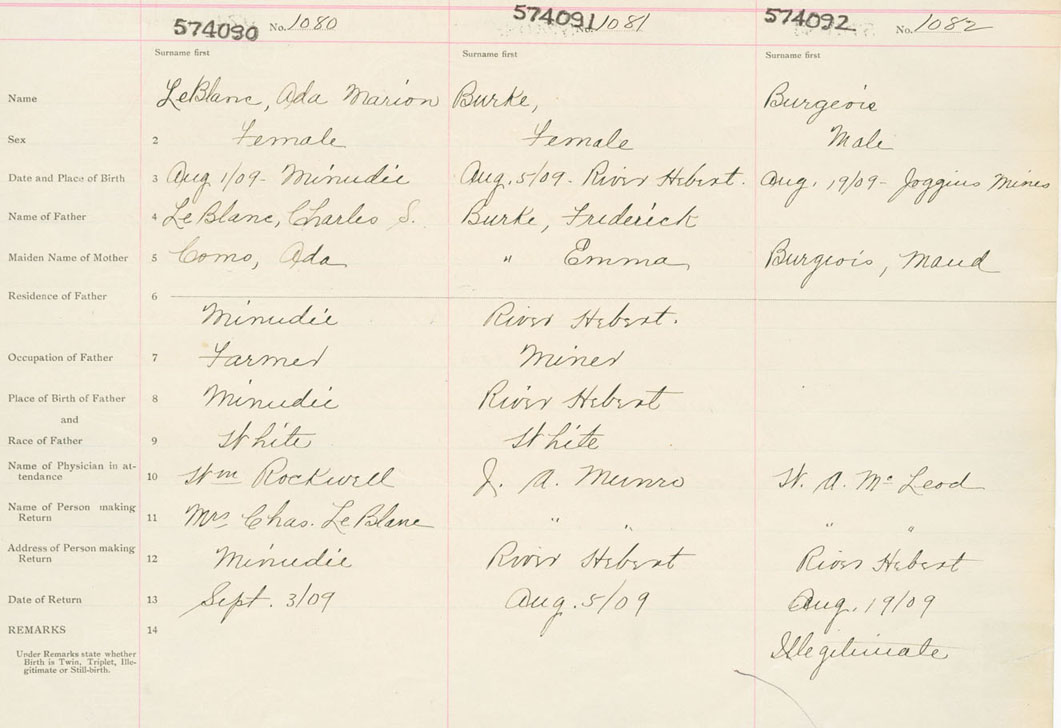 574090 No. 1080 574091 No. 1081 574092 No. 1082
Surname first Surname first Surname first
Name LeBlanc, Ada Marion Burke, Burgeois
Sex 2 Female Female Male
Date and Place of Birth 3 Aug 1/09- Minudie Aug. 5/09- River Hebert. Aug. 19/09- Joggins Mines
Name of Father 4 LeBlanc, Charles S. Burke, Frederick
Maiden Name of Mother 5 Como, Ada " Emma Burgeois, Maud
Residence of Father 6
Minudie River Hebert.
Occupation of Father 7 Farmer Miner
Place of Birth of Father 8 Minudie River Hebert
and
Race of Father 9 White White
Name of Physician in at-
tendance 10 Wm Rockwell J. A. Munro W. A. McLeod
Name of Person making
Return 11 Mrs Chas. LeBlanc " " " "
Address of Person making
Return 12 Minudie River Hebert River Hebert
Date of Return 13 Sept. 3/09 Aug. 5/09 Aug. 19/09
REMARKS 14
Illegitimate
Under Remarks state whether
Birth is Twin, Triplet, Ille-
gitimate or Still-birth.